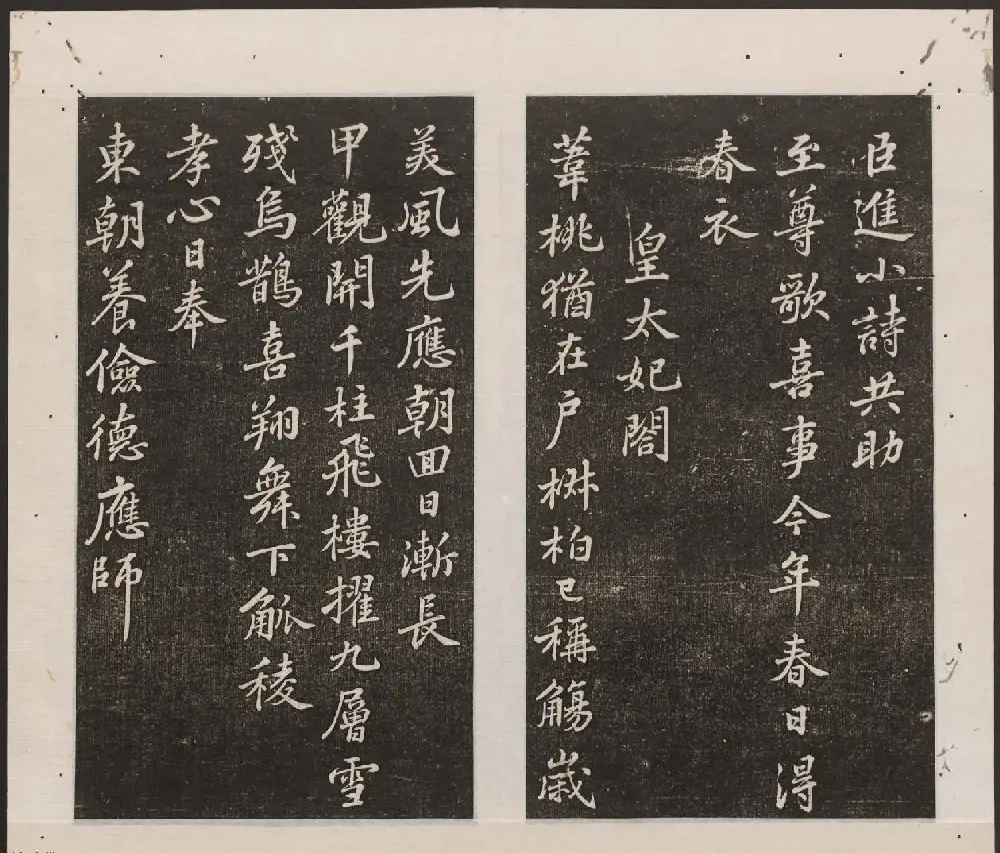 臣進小詩共助
至尊歌喜事今年春日得
春衣
皇太妃閤
葦桃猶在戶椒柏已稱觴歲
美風先應朝回日漸長
甲觀開千柱飛樓擢九層雪
殘烏鵲喜翔舞下觚稜
孝心日奉
東朝養儉德應師